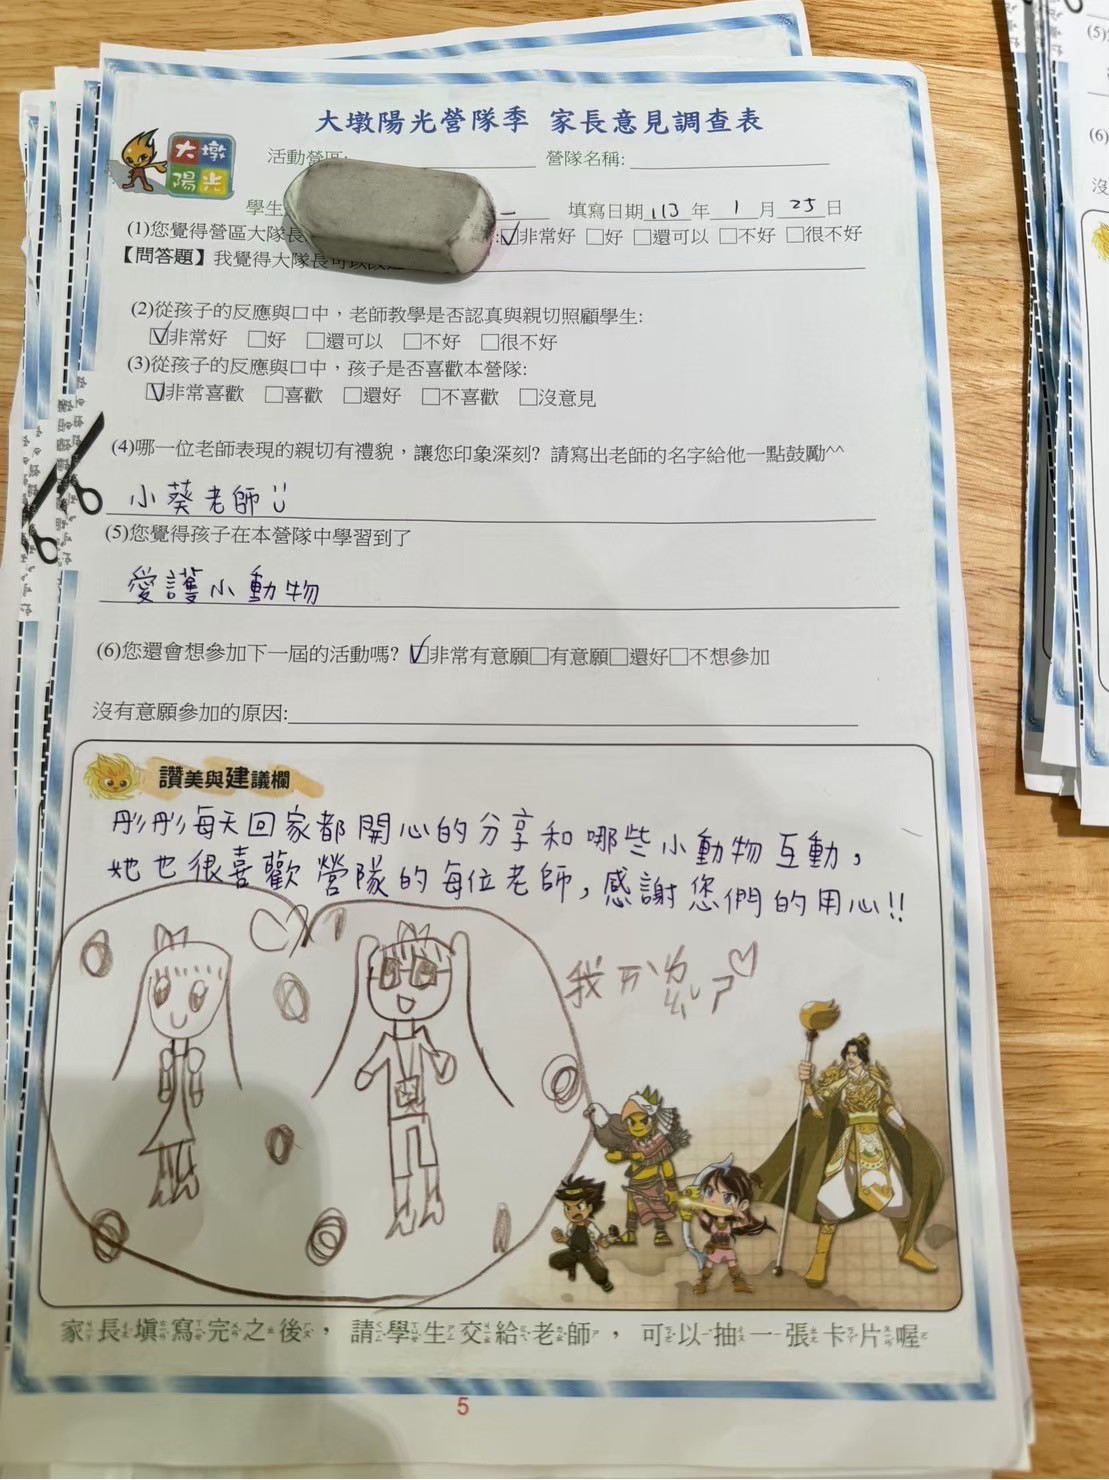 大墩陽光營隊季 家長意見調查表
大墩
陽光
活動營區: 營隊名稱:
學生 填寫日期 113 年 1 月 25 日
(1)您覺得營區大隊長 :☑非常好 □好 □還可以 □不好 □很不好
【問答題】我覺得大隊長可以
(2)從孩子的反應與口中，老師教學是否認真與親切照顧學生:
☑非常好 □好 □還可以 □不好 □很不好
(3)從孩子的反應與口中，孩子是否喜歡本營隊:
☑非常喜歡 □喜歡 □還好 □不喜歡 □沒意見
(4)哪一位老師表現的親切有禮貌，讓您印象深刻? 請寫出老師的名字給他一點鼓勵^^
小葵老師
(5)您覺得孩子在本營隊中學習到了
愛護小動物
(6)您還會想參加下一屆的活動嗎? ☑非常有意願□有意願□還好□不想參加
沒有意願參加的原因:
讚美與建議欄
彤彤每天回家都開心的分享和哪些小動物互動，
她也很喜歡營隊的每位老師，感謝您們的用心!!
我
家長填寫完之後，請學生交給老師，可以抽一張卡片喔
5